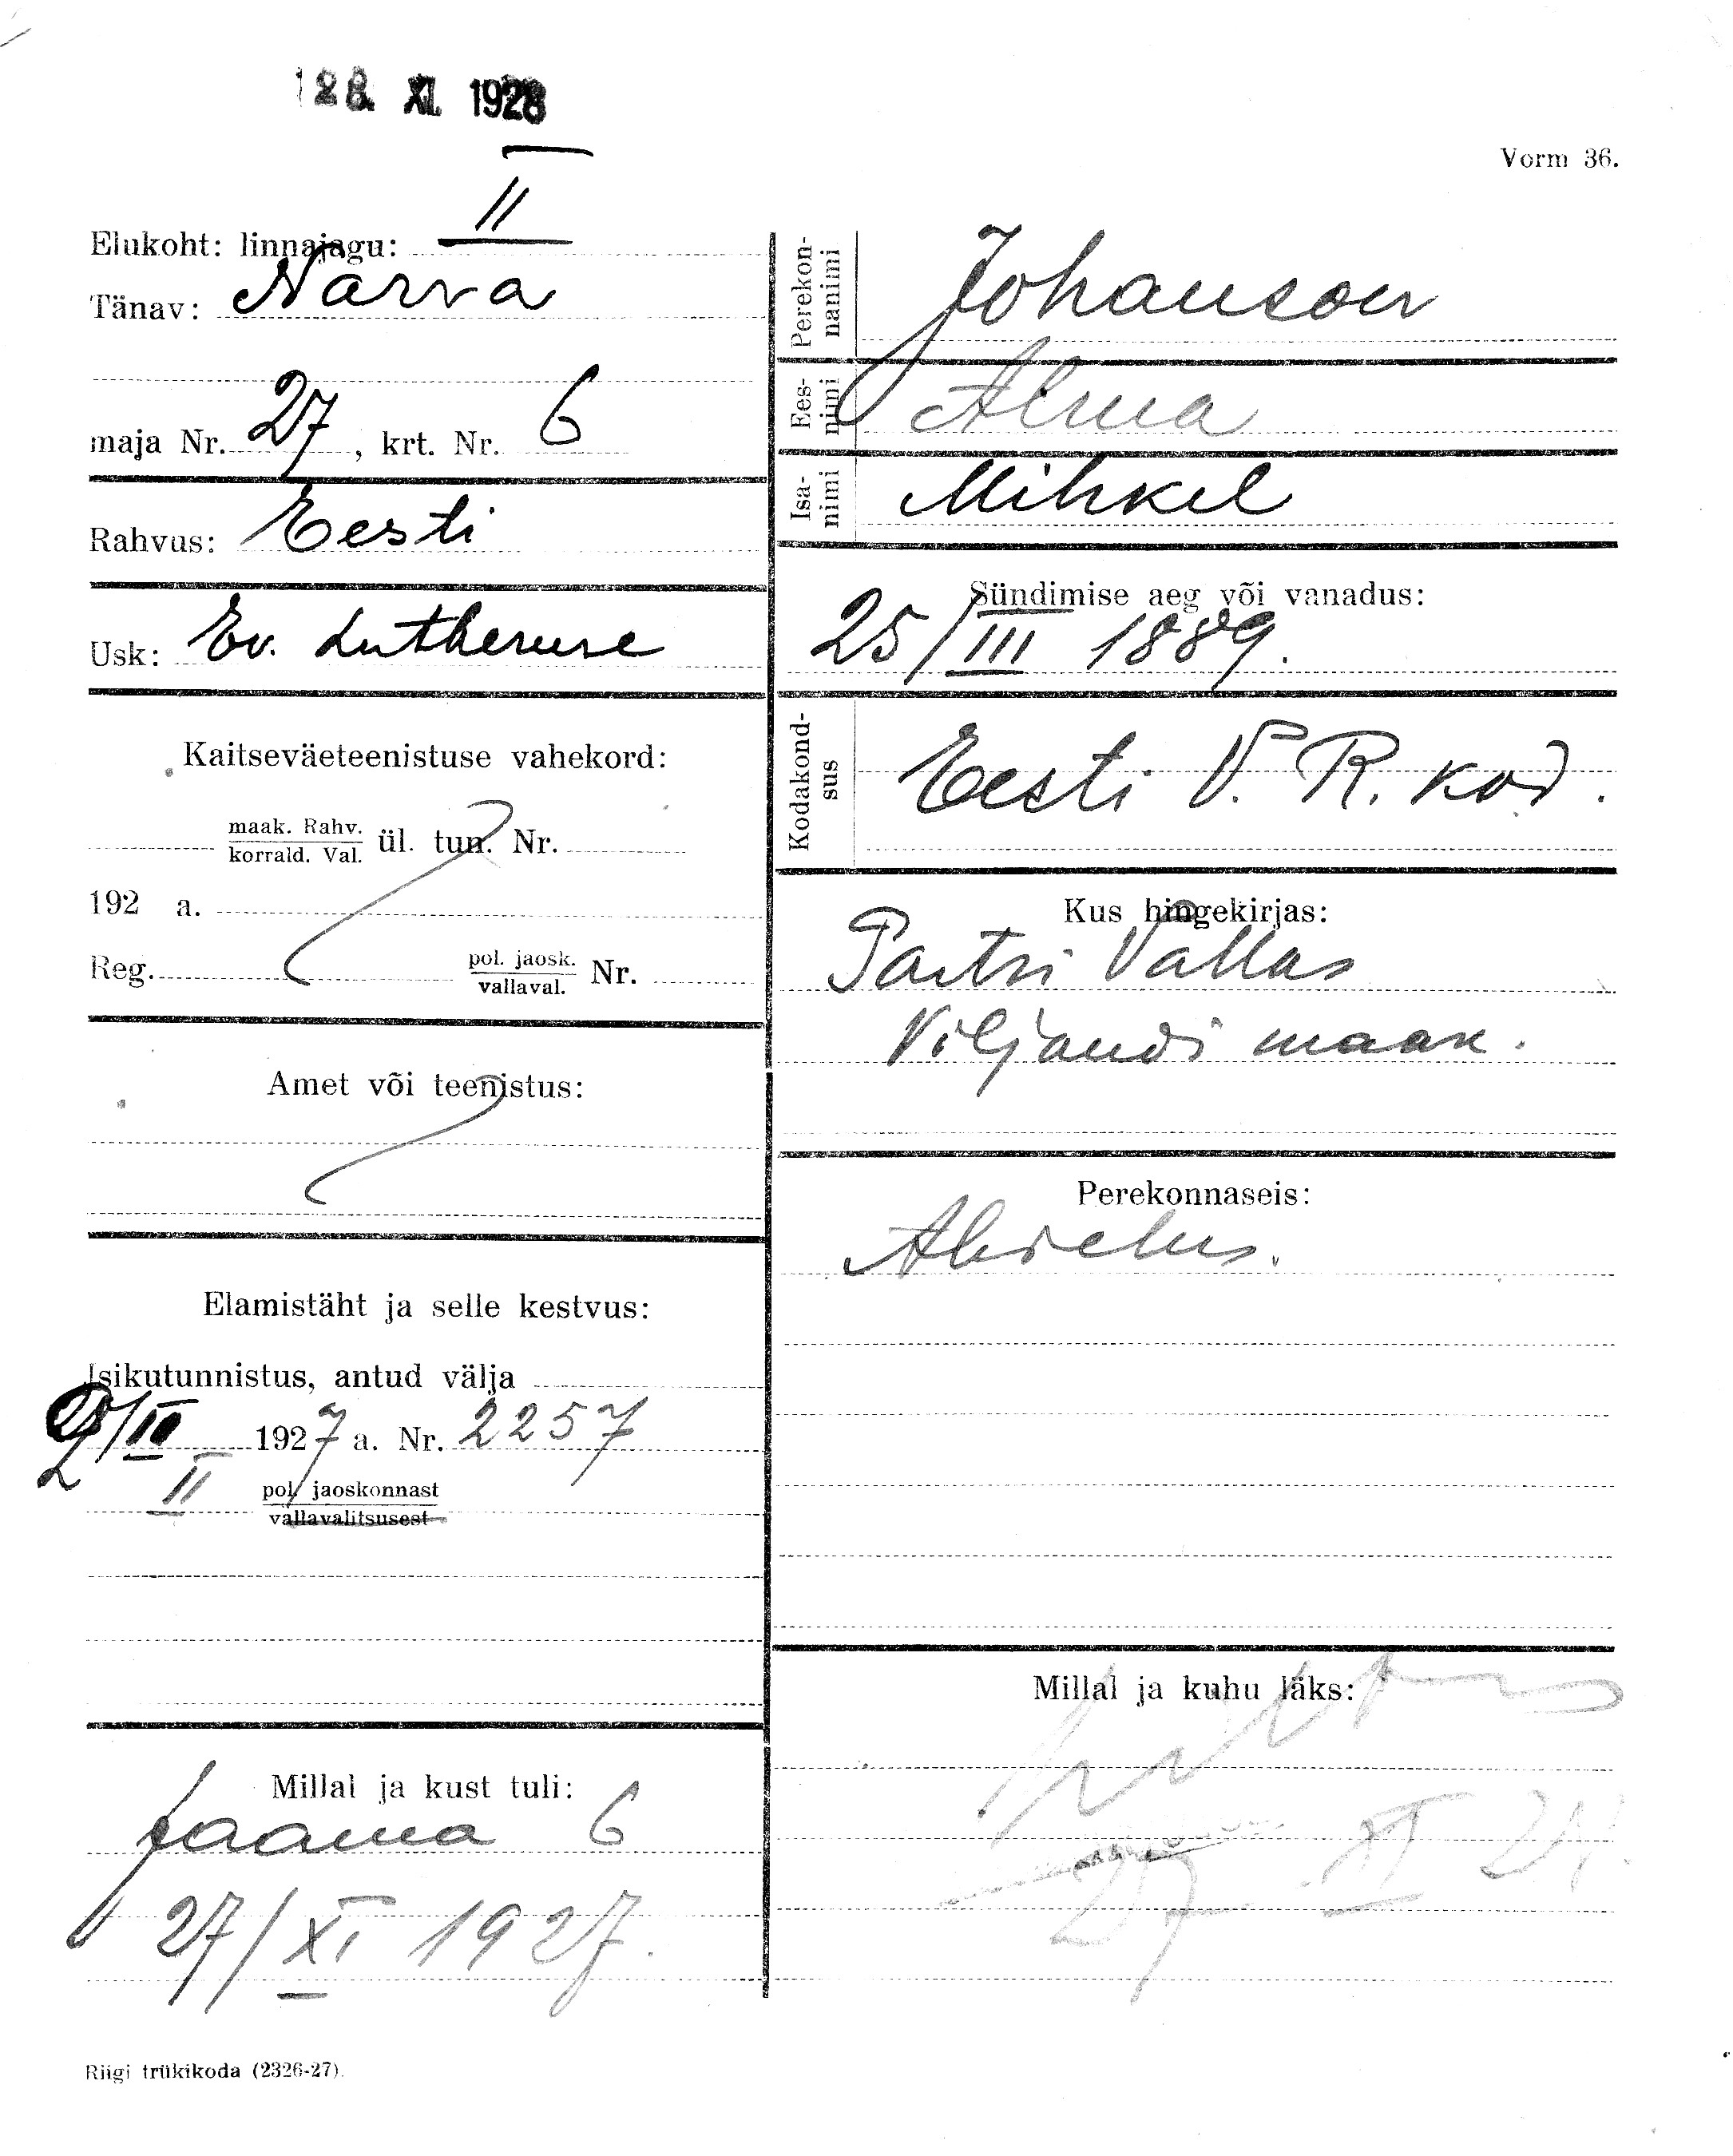 28. XI. 1928
Vorm 36.
Elukoht: linnajagu: II
Tänav: Narva
maja Nr. 27, krt. Nr. 6
Rahvus: Eesti
Usk: Ev. Lutheruse
Kaitseväeteenistuse vahekord:
maak. Rahv.
korrald. Val. ül. tun. Nr.
192 a.
Reg. pol. jaosk.
vallaval. Nr.
Amet või teenistus:
Elamistäht ja selle kestvus:
Isikutunnistus, antud välja
1927 a. Nr. 2257
II pol. jaoskonnast
vallavalitsusest
Millal ja kust tuli:
Jaama 6
27/XI 1927.
Perekon-
nanimi Johanson
Ees-
nimi Alma
Isa-
nimi Mihkel
Sündimise aeg või vanadus:
25/III 1889.
Kodakond-
sus Eesti V. R. kod.
Kus hingekirjas:
Vallas
Viljandi maak.
Perekonnaseis:
Abielus.
Millal ja kuhu läks:
27 XI
Riigi trükikoda (2326-27).